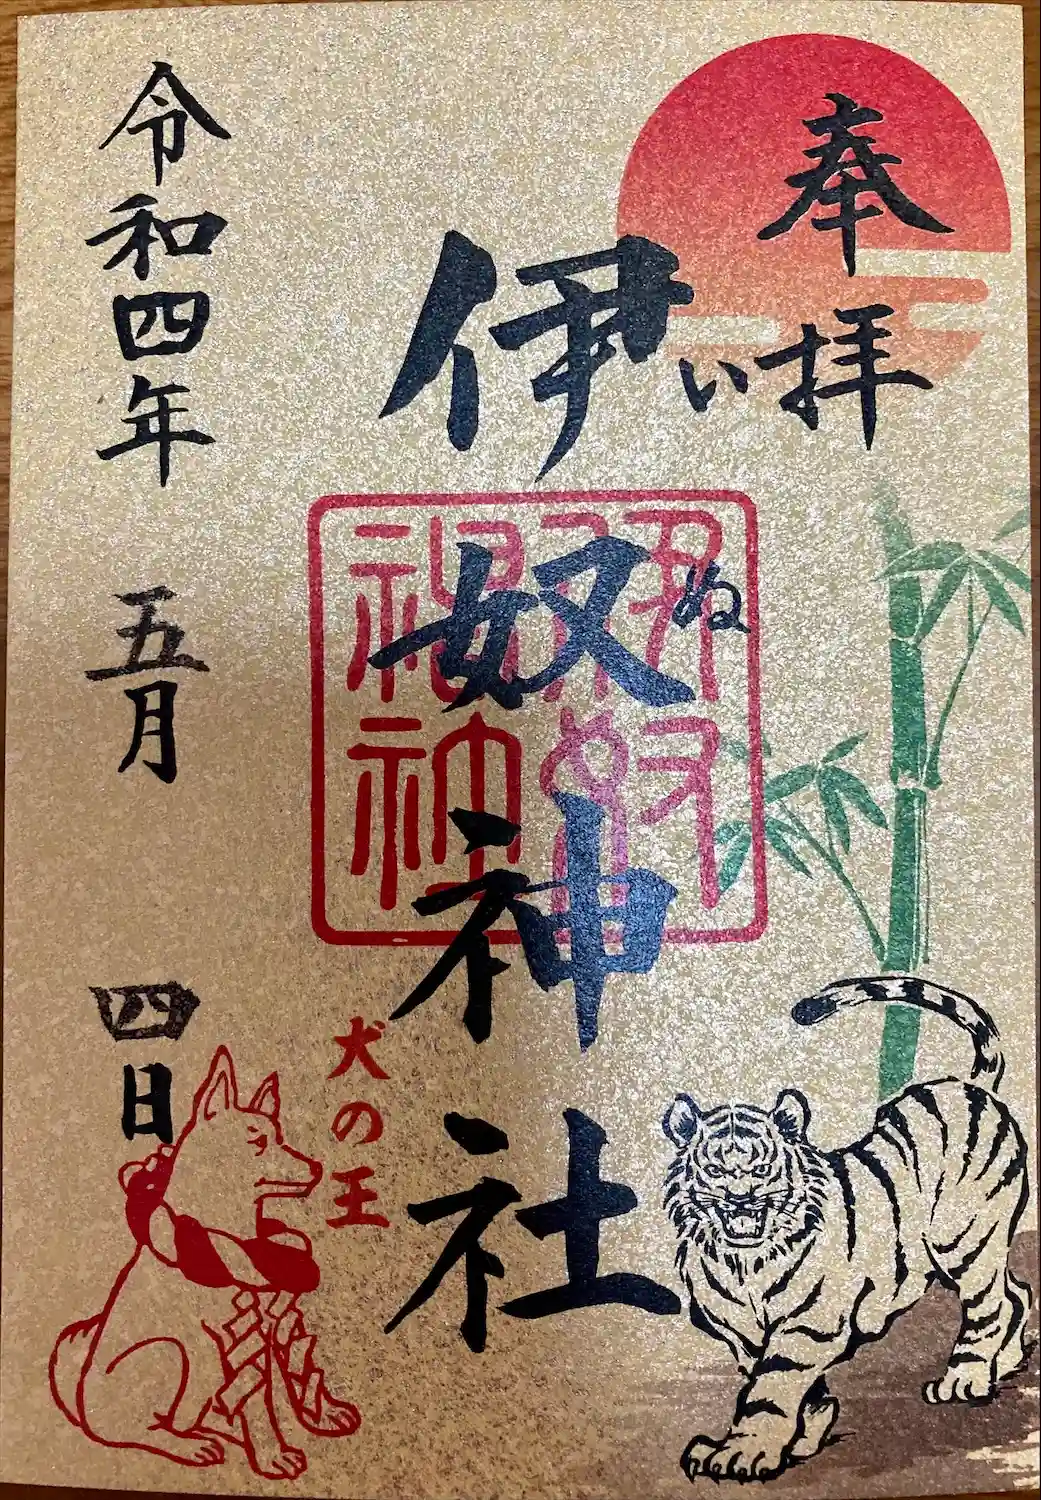 奉拝
伊奴神社
い
ぬ
犬の王
令和四年 五月 四日